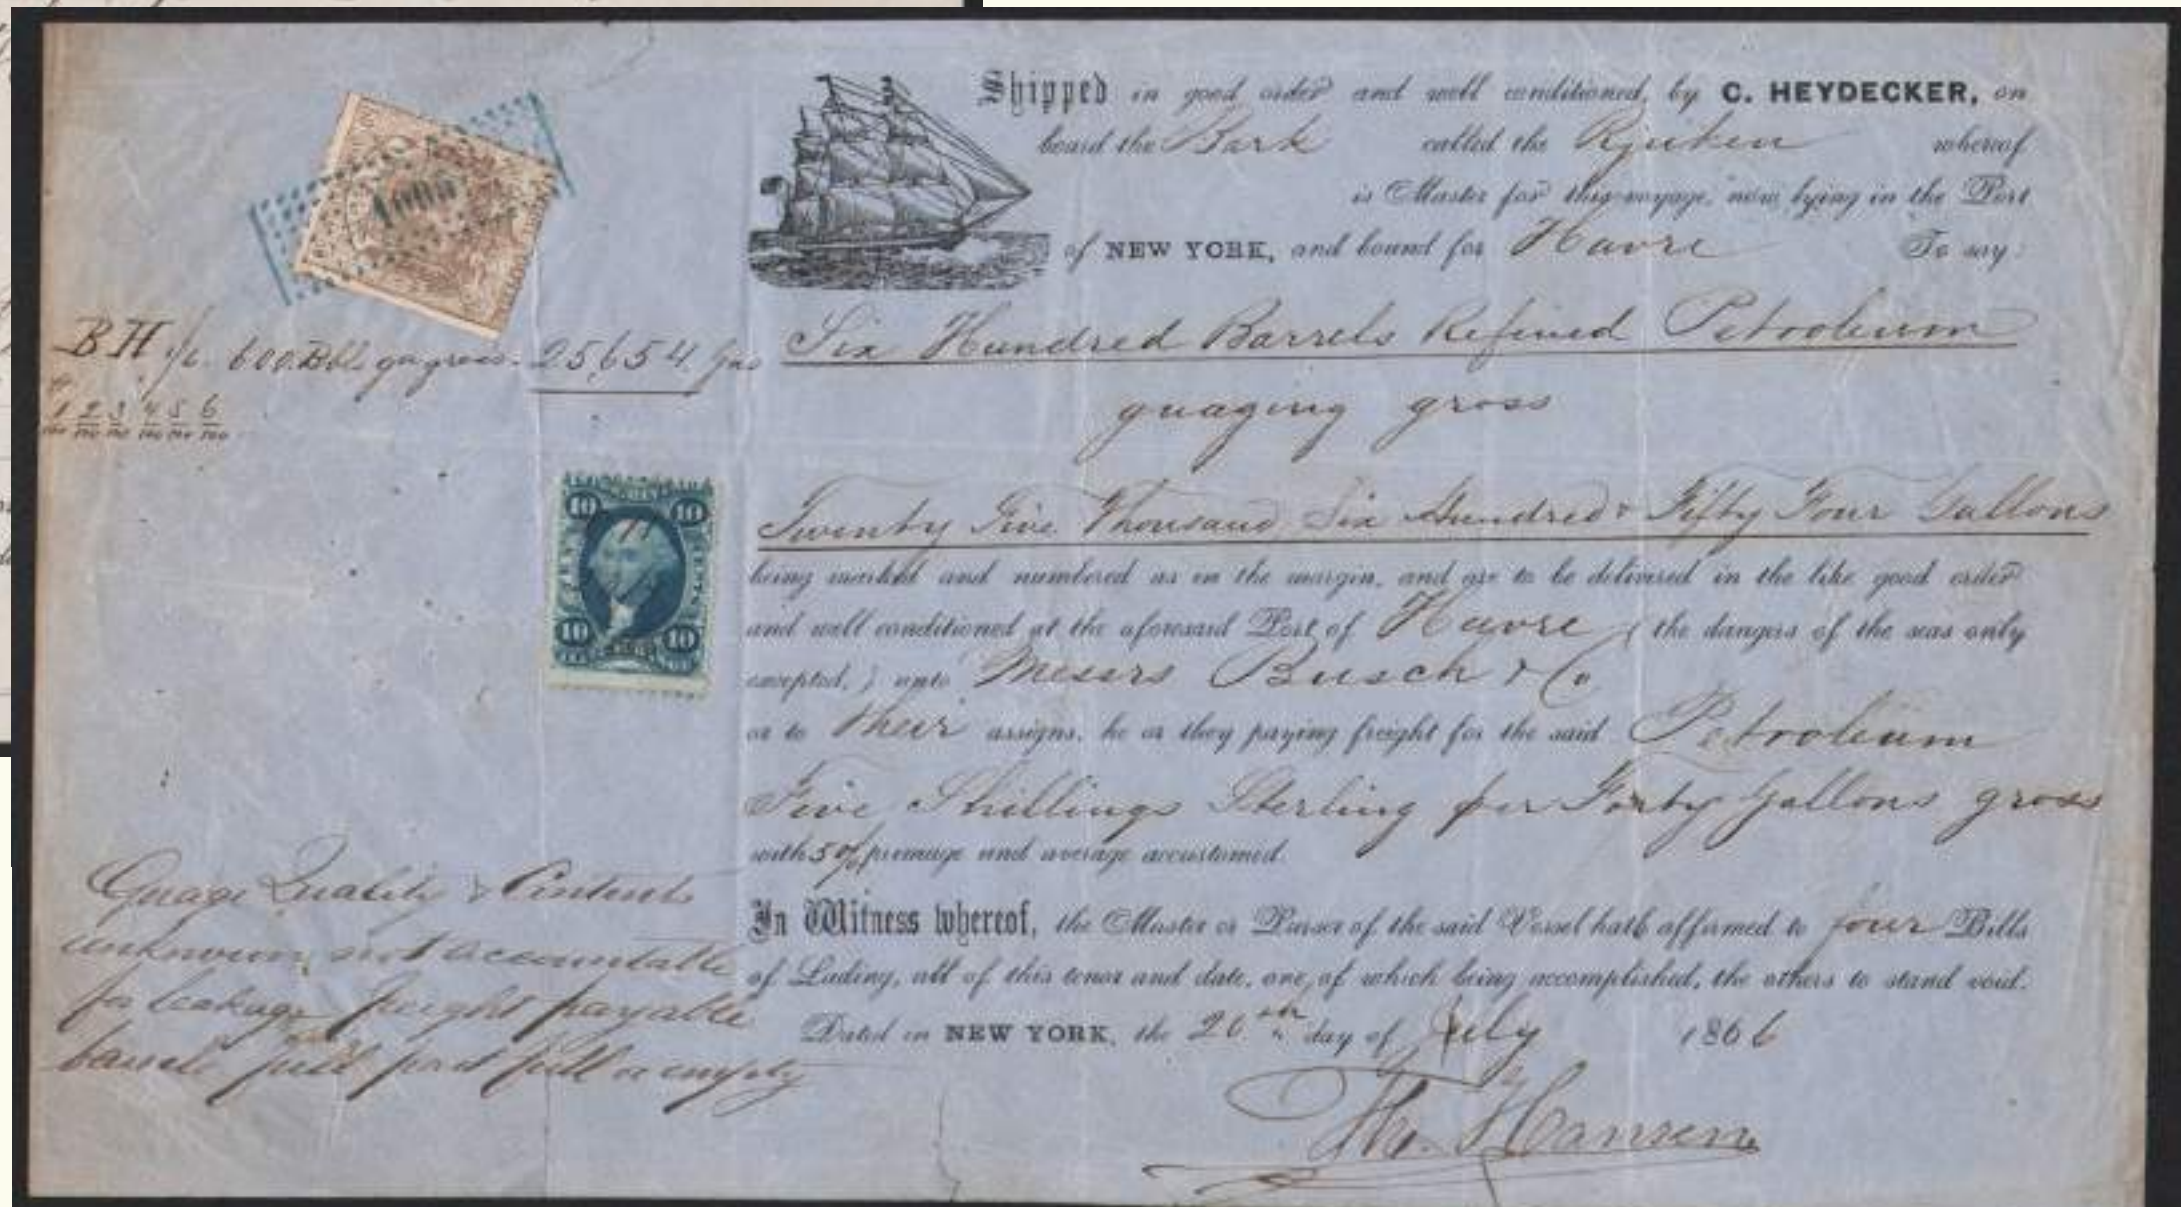 Shipped in good order and well conditioned, by C. HEYDECKER, on
board the Bark called the Rjuken whereof
is Master for this voyage, now lying in the Port
of NEW YORK, and bound for Havre To say:
BH 600 Bbl gu gross 25,654 Gns Six Hundred Barrels Refined Petroleum
1 2 3 4 5 6
100 100 100 100 100 100
guaging gross
Twenty Five Thousand Six Hundred & Fifty Four Gallons
being marked and numbered as in the margin, and are to be delivered in the like good order
and well conditioned at the aforesaid Port of Havre (the dangers of the seas only
excepted,) unto Messrs Busch & Co
or to their assigns, he or they paying freight for the said Petroleum
Five Shillings Sterling per Forty Gallons gross
with 5% primage and average accustomed.
In Witness whereof, the Master or Purser of the said Vessel hath affirmed to four Bills
of Lading, all of this tenor and date, one of which being accomplished, the others to stand void.
Dated in NEW YORK, the 20th day of July 1866
Th. Hansen
Guage Quality & Contents
unknown not accountable
for leakage freight payable
barrels full part full or empty
10 10
10 10